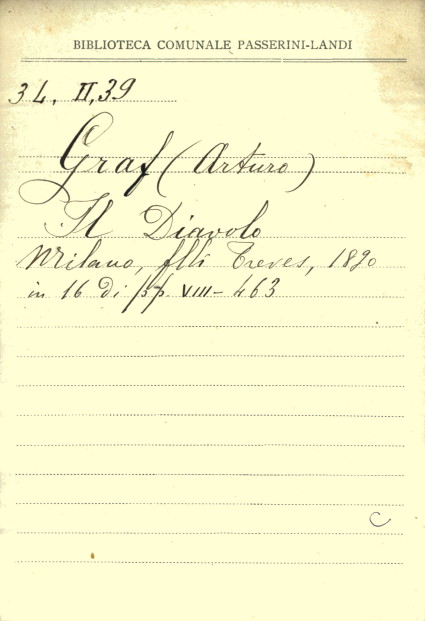 BIBLIOTECA COMUNALE PASSERINI-LANDI
3L, II, 39
Graf (Arturo)
Il Diavolo
Milano, flli Treves, 1890
in 16 di pp. VIII - 463
C